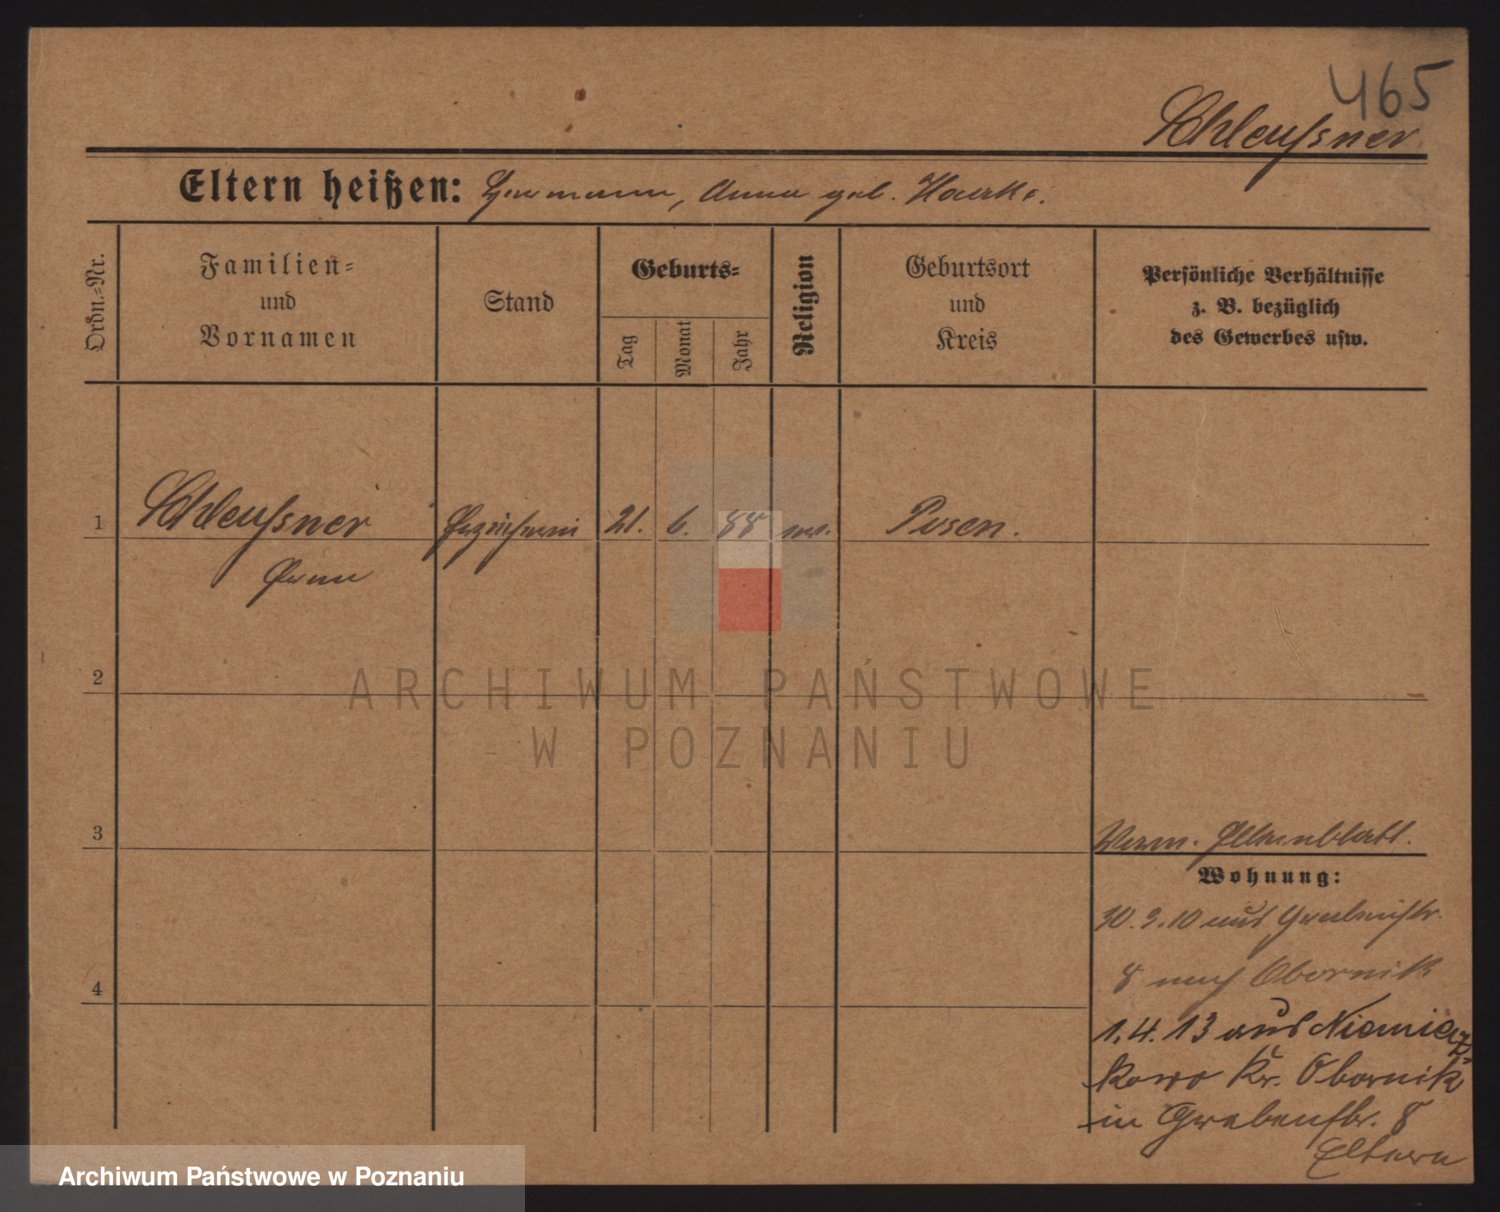 465
Schleussner
Eltern heißen: Hermann, Anna geb. Hauke.
Ordn.=Nr.
Familien=
und
Vornamen
Stand
Geburts=
Tag
Monat
Jahr
Religion
Geburtsort
und
Kreis
Persönliche Verhältnisse
z. B. bezüglich
des Gewerbes usw.
1 Schleussner Erzieherin 21. 6. 88 ev. Posen.
2
3
Verm. Elternblatt.
Wohnung:
30. 3. 10 aus Grabenstr.
8 nach Obornik
4
1. 4. 13 aus Niemiecz-
kowo Kr. Obornik
in Grabenstr. 8
Eltern
ARCHIWUM PAŃSTWOWE
W POZNANIU
Archiwum Państwowe w Poznaniu